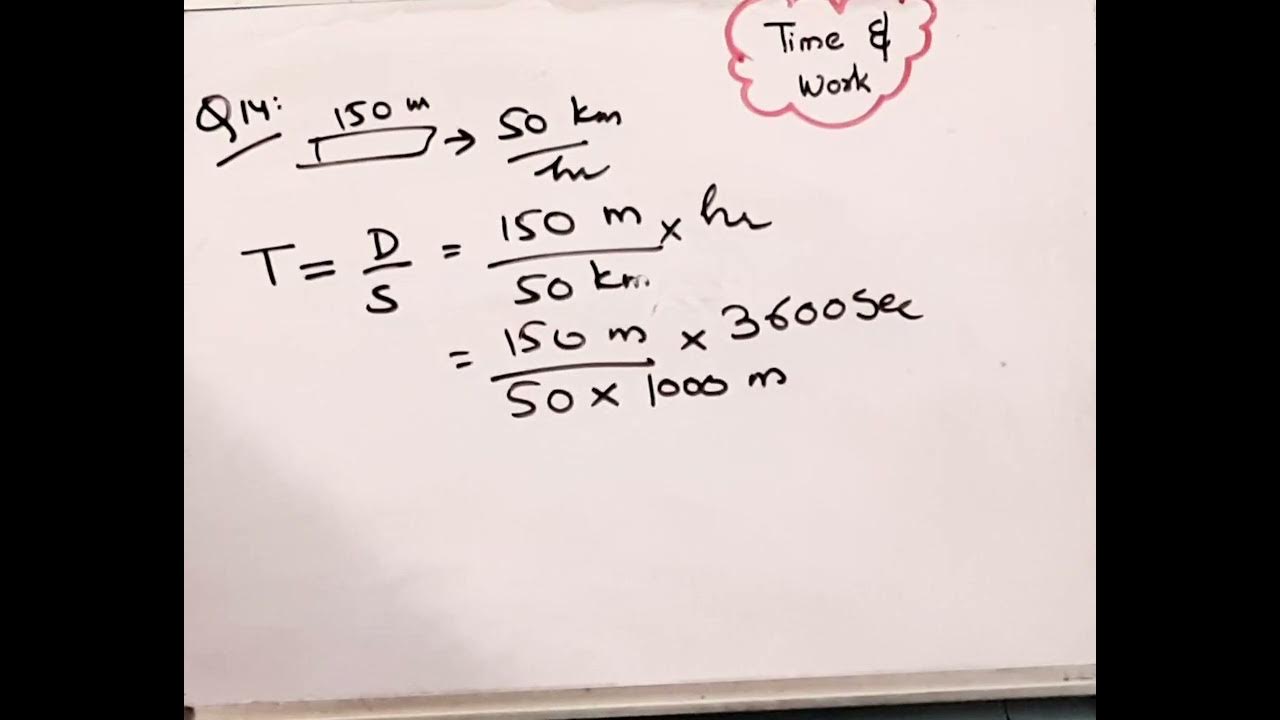 Time &
Work
Q14: 150 m → 50 km/hr
T = D/S = 150 m/50 km × hr
= 150 m/50 × 1000 m × 3600 sec